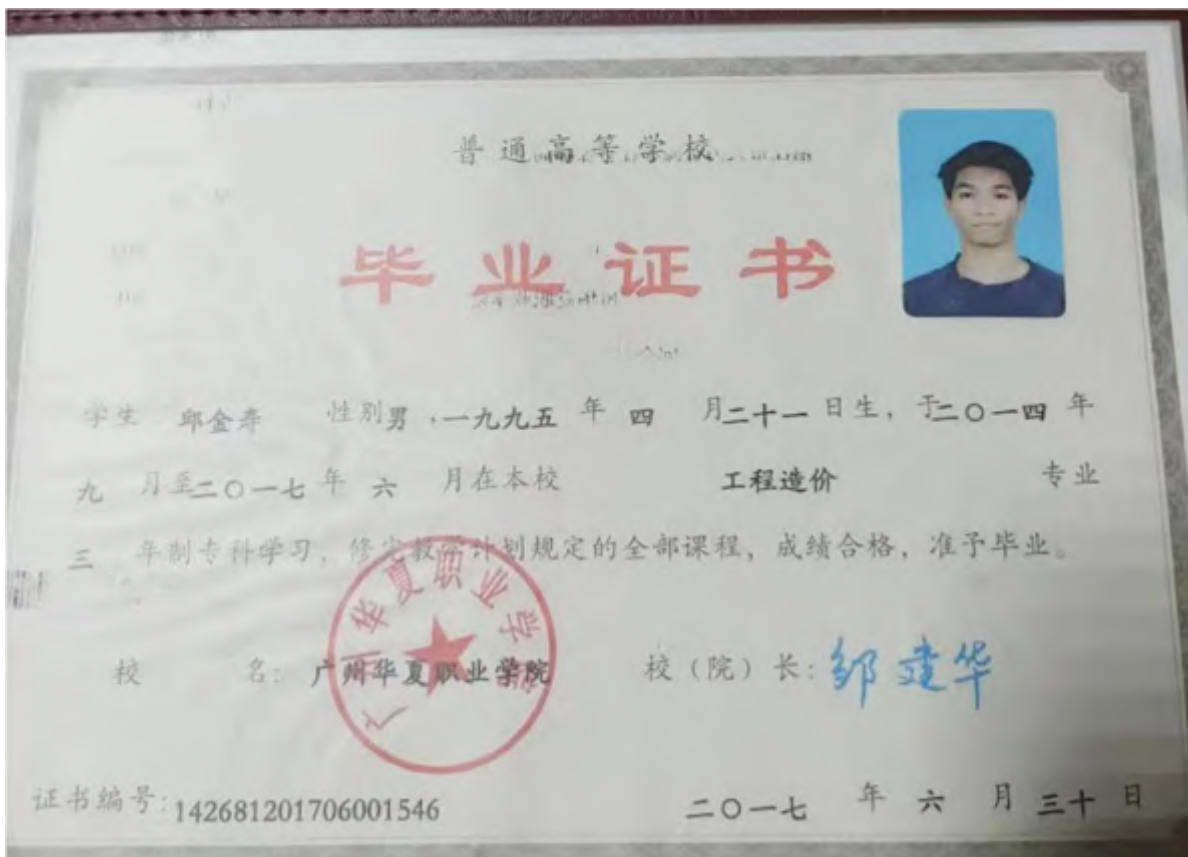 普通高等学校
毕业证书
学生 邱金寿 性别男,一九九五 年 四 月二十一 日生,于二〇一四 年
九 月至二〇一七 年 六 月在本校 工程造价 专业
三 年制专科学习,修完教学计划规定的全部课程,成绩合格,准予毕业。
广州华夏职业学院
校 名: 广州华夏职业学院 校(院)长: 邹建华
证书编号: 142681201706001546 二〇一七 年 六 月 三十 日